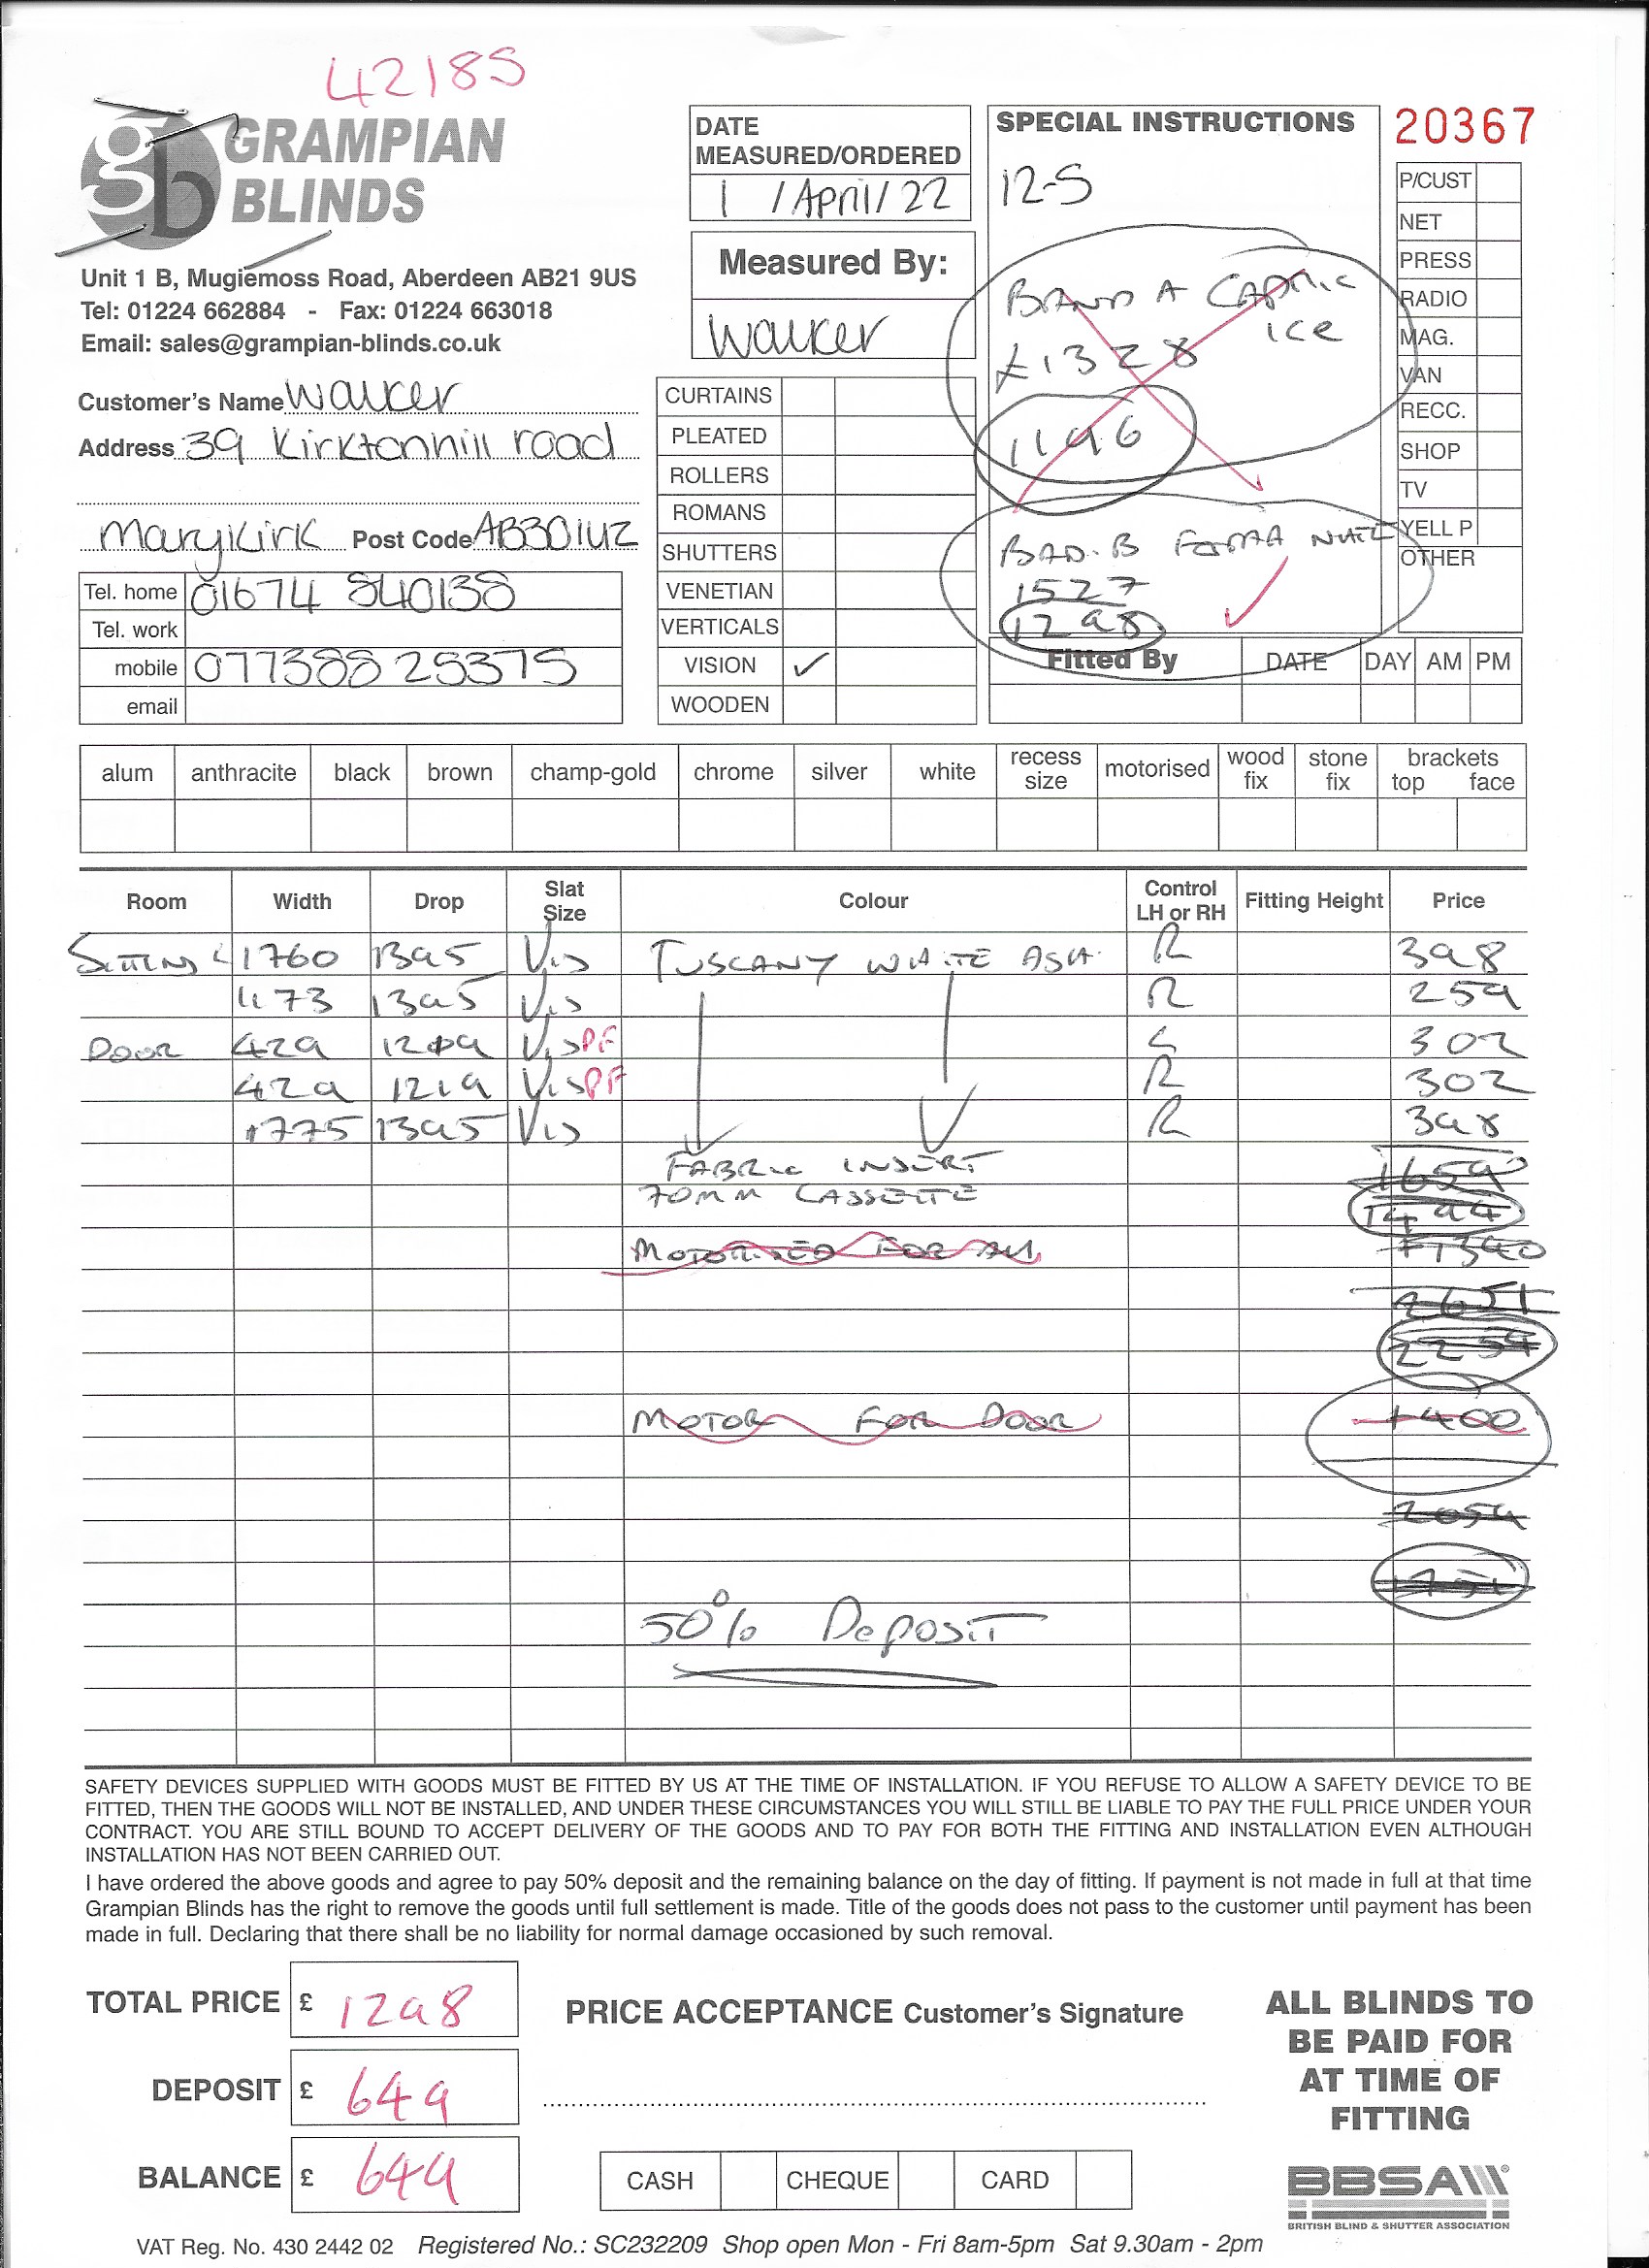 42185
gb GRAMPIAN
BLINDS
Unit 1 B, Mugiemoss Road, Aberdeen AB21 9US
Tel: 01224 662884 - Fax: 01224 663018
Email: sales@grampian-blinds.co.uk
Customer's Name Walker
Address 39 Kirktonhill road
Marykirk Post Code AB30 1UZ
Tel. home 01674 840138
Tel. work
mobile 077388 25375
email
DATE
MEASURED/ORDERED
1 / April / 22
Measured By:
Walker
CURTAINS
PLEATED
ROLLERS
ROMANS
SHUTTERS
VENETIAN
VERTICALS
VISION ✓
WOODEN
SPECIAL INSTRUCTIONS
12-5
BAND A CAPRIC
ICE
£1328
1196
BAD. B
1527
1298
20367
P/CUST
NET
PRESS
RADIO
MAG.
VAN
RECC.
SHOP
TV
YELL P
OTHER
Fitted By DATE DAY AM PM
alum anthracite black brown champ-gold chrome silver white recess size motorised wood fix stone fix brackets top face
Room Width Drop Slat Size Colour Control LH or RH Fitting Height Price
SITTING L 1760 1395 VIS TUSCANY WHITE ASH R 398
1173 1395 VIS R 259
DOOR 429 1219 VIS PF L 302
429 1219 VIS PF R 302
1775 1395 VIS R 398
FABRIC INSERT 1659
70MM CASSETTE 1494
MOTORISED FOR ALL
2651
2254
MOTOR FOR DOOR +400
2054
50% DEPOSIT
SAFETY DEVICES SUPPLIED WITH GOODS MUST BE FITTED BY US AT THE TIME OF INSTALLATION. IF YOU REFUSE TO ALLOW A SAFETY DEVICE TO BE
FITTED, THEN THE GOODS WILL NOT BE INSTALLED, AND UNDER THESE CIRCUMSTANCES YOU WILL STILL BE LIABLE TO PAY THE FULL PRICE UNDER YOUR
CONTRACT. YOU ARE STILL BOUND TO ACCEPT DELIVERY OF THE GOODS AND TO PAY FOR BOTH THE FITTING AND INSTALLATION EVEN ALTHOUGH
INSTALLATION HAS NOT BEEN CARRIED OUT.
I have ordered the above goods and agree to pay 50% deposit and the remaining balance on the day of fitting. If payment is not made in full at that time
Grampian Blinds has the right to remove the goods until full settlement is made. Title of the goods does not pass to the customer until payment has been
made in full. Declaring that there shall be no liability for normal damage occasioned by such removal.
TOTAL PRICE £ 1298
DEPOSIT £ 649
BALANCE £ 649
PRICE ACCEPTANCE Customer's Signature
CASH CHEQUE CARD
ALL BLINDS TO
BE PAID FOR
AT TIME OF
FITTING
BBSA
BRITISH BLIND & SHUTTER ASSOCIATION
VAT Reg. No. 430 2442 02 Registered No.: SC232209 Shop open Mon - Fri 8am-5pm Sat 9.30am - 2pm